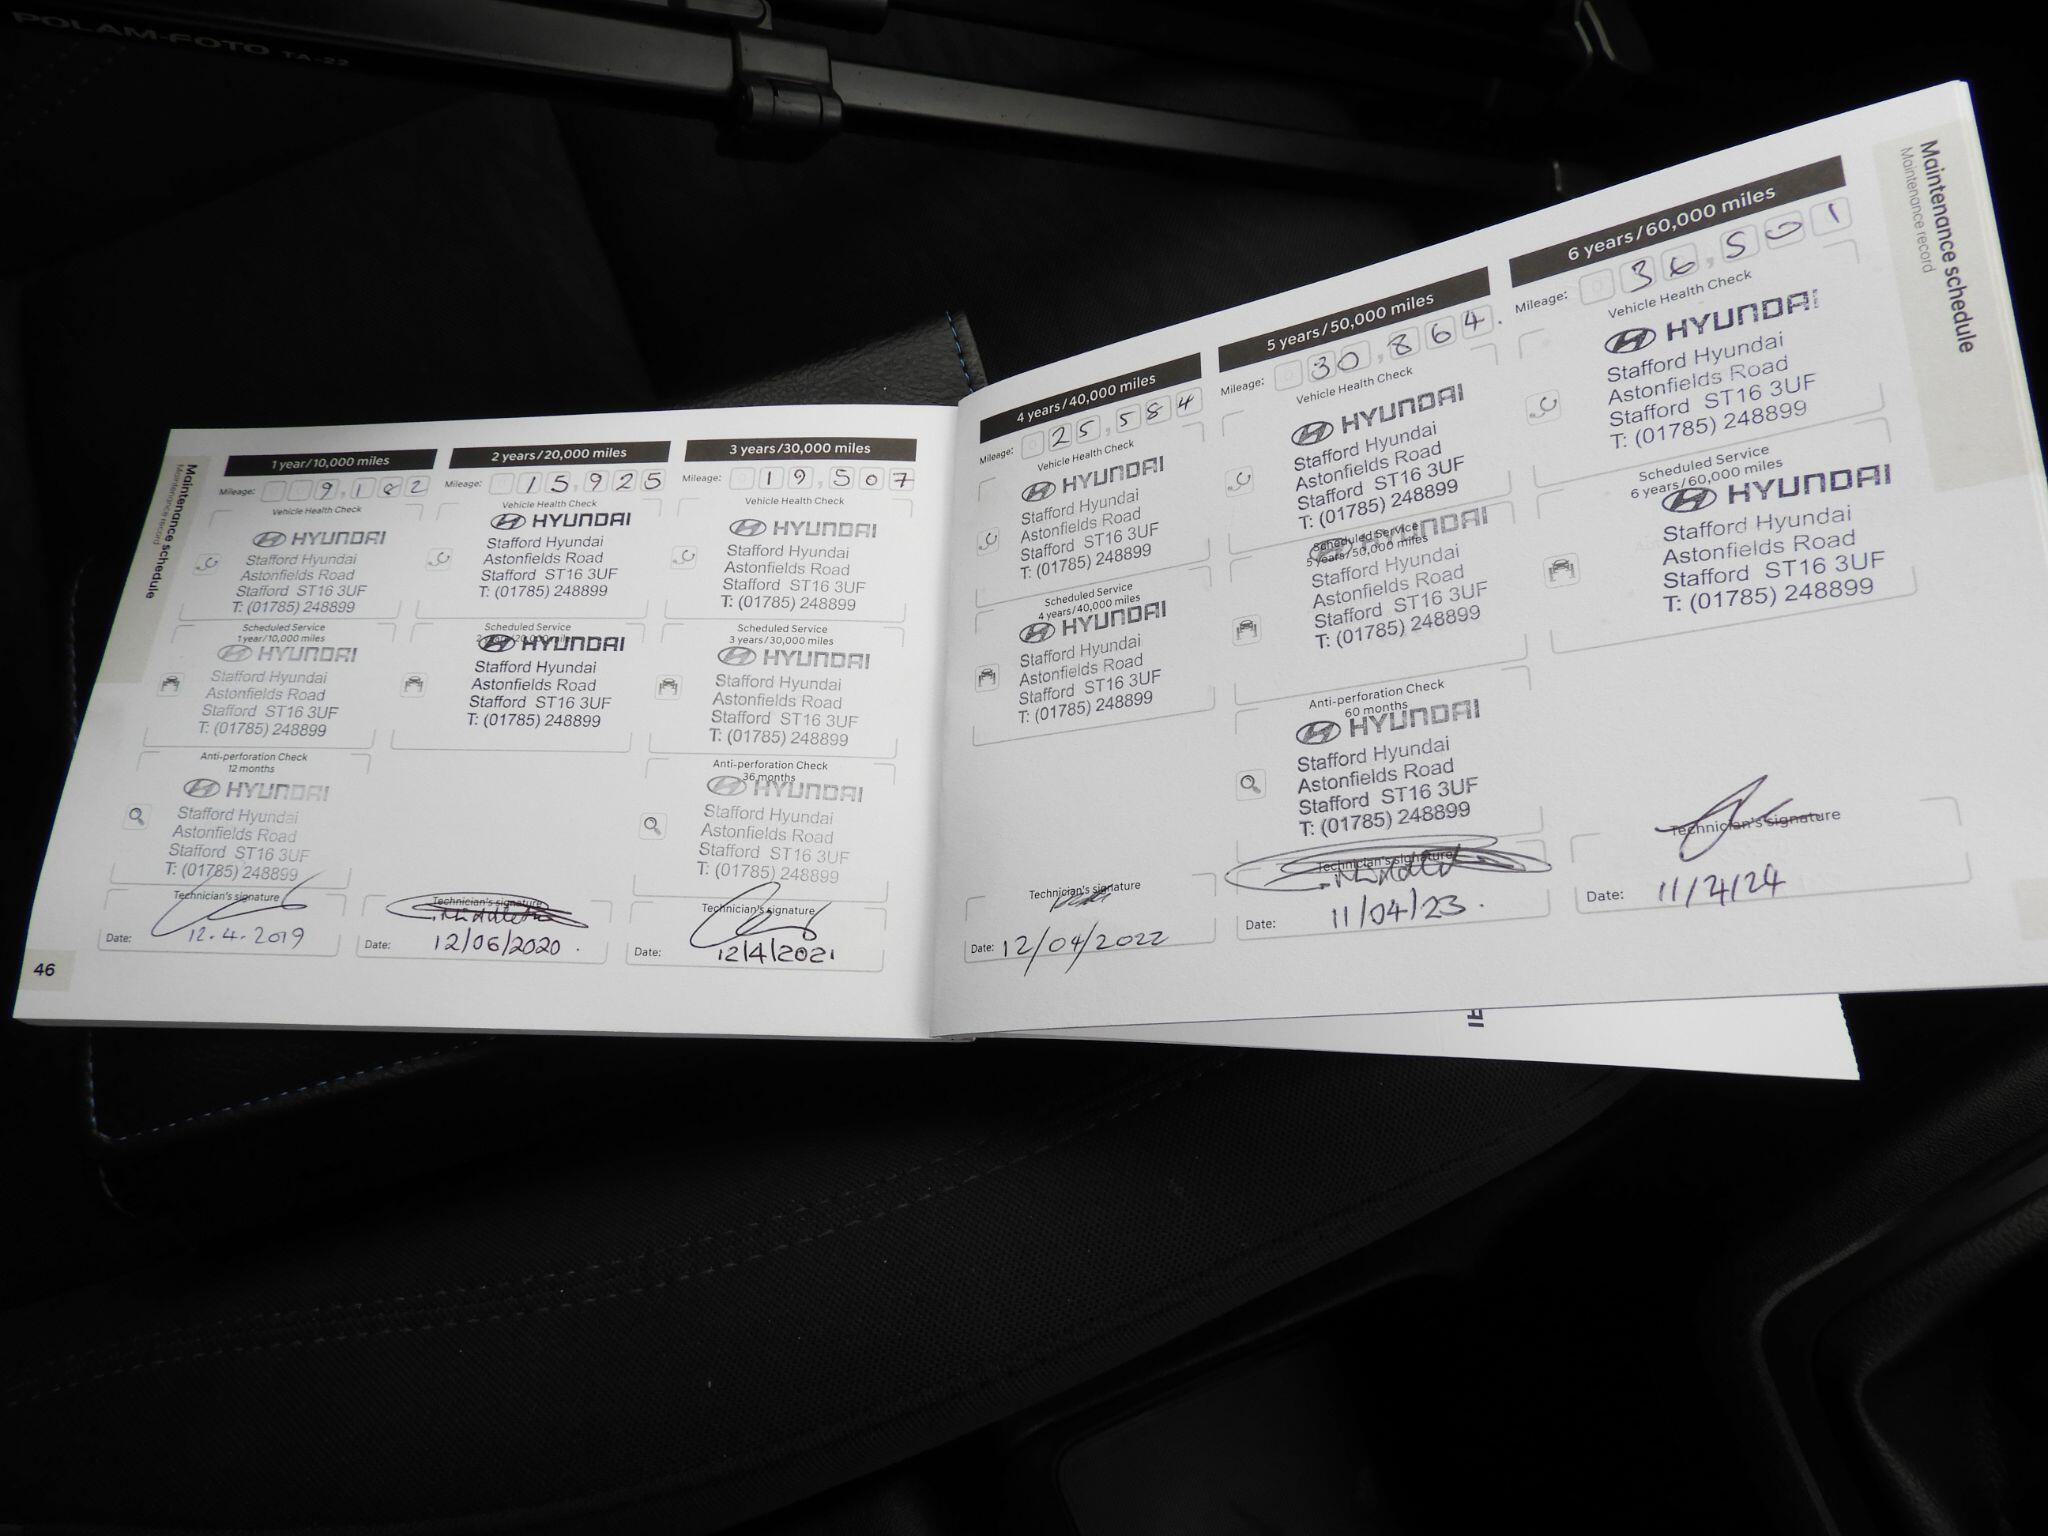 POLAM-FOTO TA-22
Maintenance schedule
Maintenance record
1 year/10,000 miles
Mileage: 9,182
Vehicle Health Check
HYUNDAI
Stafford Hyundai
Astonfields Road
Stafford ST16 3UF
T: (01785) 248899
Scheduled Service
1 year/10,000 miles
HYUNDAI
Stafford Hyundai
Astonfields Road
Stafford ST16 3UF
T: (01785) 248899
Anti-perforation Check
12 months
HYUNDAI
Stafford Hyundai
Astonfields Road
Stafford ST16 3UF
T: (01785) 248899
Technician's signature
Date: 12.4.2019
46
2 years/20,000 miles
Mileage: 15,925
Vehicle Health Check
HYUNDAI
Stafford Hyundai
Astonfields Road
Stafford ST16 3UF
T: (01785) 248899
Scheduled Service
2 years/20,000 miles
HYUNDAI
Stafford Hyundai
Astonfields Road
Stafford ST16 3UF
T: (01785) 248899
Technician's signature
Date: 12/06/2020.
3 years/30,000 miles
Mileage: 19,507
Vehicle Health Check
HYUNDAI
Stafford Hyundai
Astonfields Road
Stafford ST16 3UF
T: (01785) 248899
Scheduled Service
3 years/30,000 miles
HYUNDAI
Stafford Hyundai
Astonfields Road
Stafford ST16 3UF
T: (01785) 248899
Anti-perforation Check
36 months
HYUNDAI
Stafford Hyundai
Astonfields Road
Stafford ST16 3UF
T: (01785) 248899
Technician's signature
Date: 12/4/2021
4 years/40,000 miles
Mileage: 25,584
Vehicle Health Check
HYUNDAI
Stafford Hyundai
Astonfields Road
Stafford ST16 3UF
T: (01785) 248899
Scheduled Service
4 years/40,000 miles
HYUNDAI
Stafford Hyundai
Astonfields Road
Stafford ST16 3UF
T: (01785) 248899
Technician's signature
Date: 12/04/2022
5 years/50,000 miles
Mileage: 30,864.
Vehicle Health Check
HYUNDAI
Stafford Hyundai
Astonfields Road
Stafford ST16 3UF
T: (01785) 248899
Scheduled Service
5 years/50,000 miles
HYUNDAI
Stafford Hyundai
Astonfields Road
Stafford ST16 3UF
T: (01785) 248899
Anti-perforation Check
60 months
HYUNDAI
Stafford Hyundai
Astonfields Road
Stafford ST16 3UF
T: (01785) 248899
Technician's signature
Date: 11/04/23.
6 years/60,000 miles
Mileage: 36,501
Vehicle Health Check
HYUNDAI
Stafford Hyundai
Astonfields Road
Stafford ST16 3UF
T: (01785) 248899
Scheduled Service
6 years/60,000 miles
HYUNDAI
Stafford Hyundai
Astonfields Road
Stafford ST16 3UF
T: (01785) 248899
Technician's signature
Date: 11/4/24
Maintenance schedule
Maintenance record